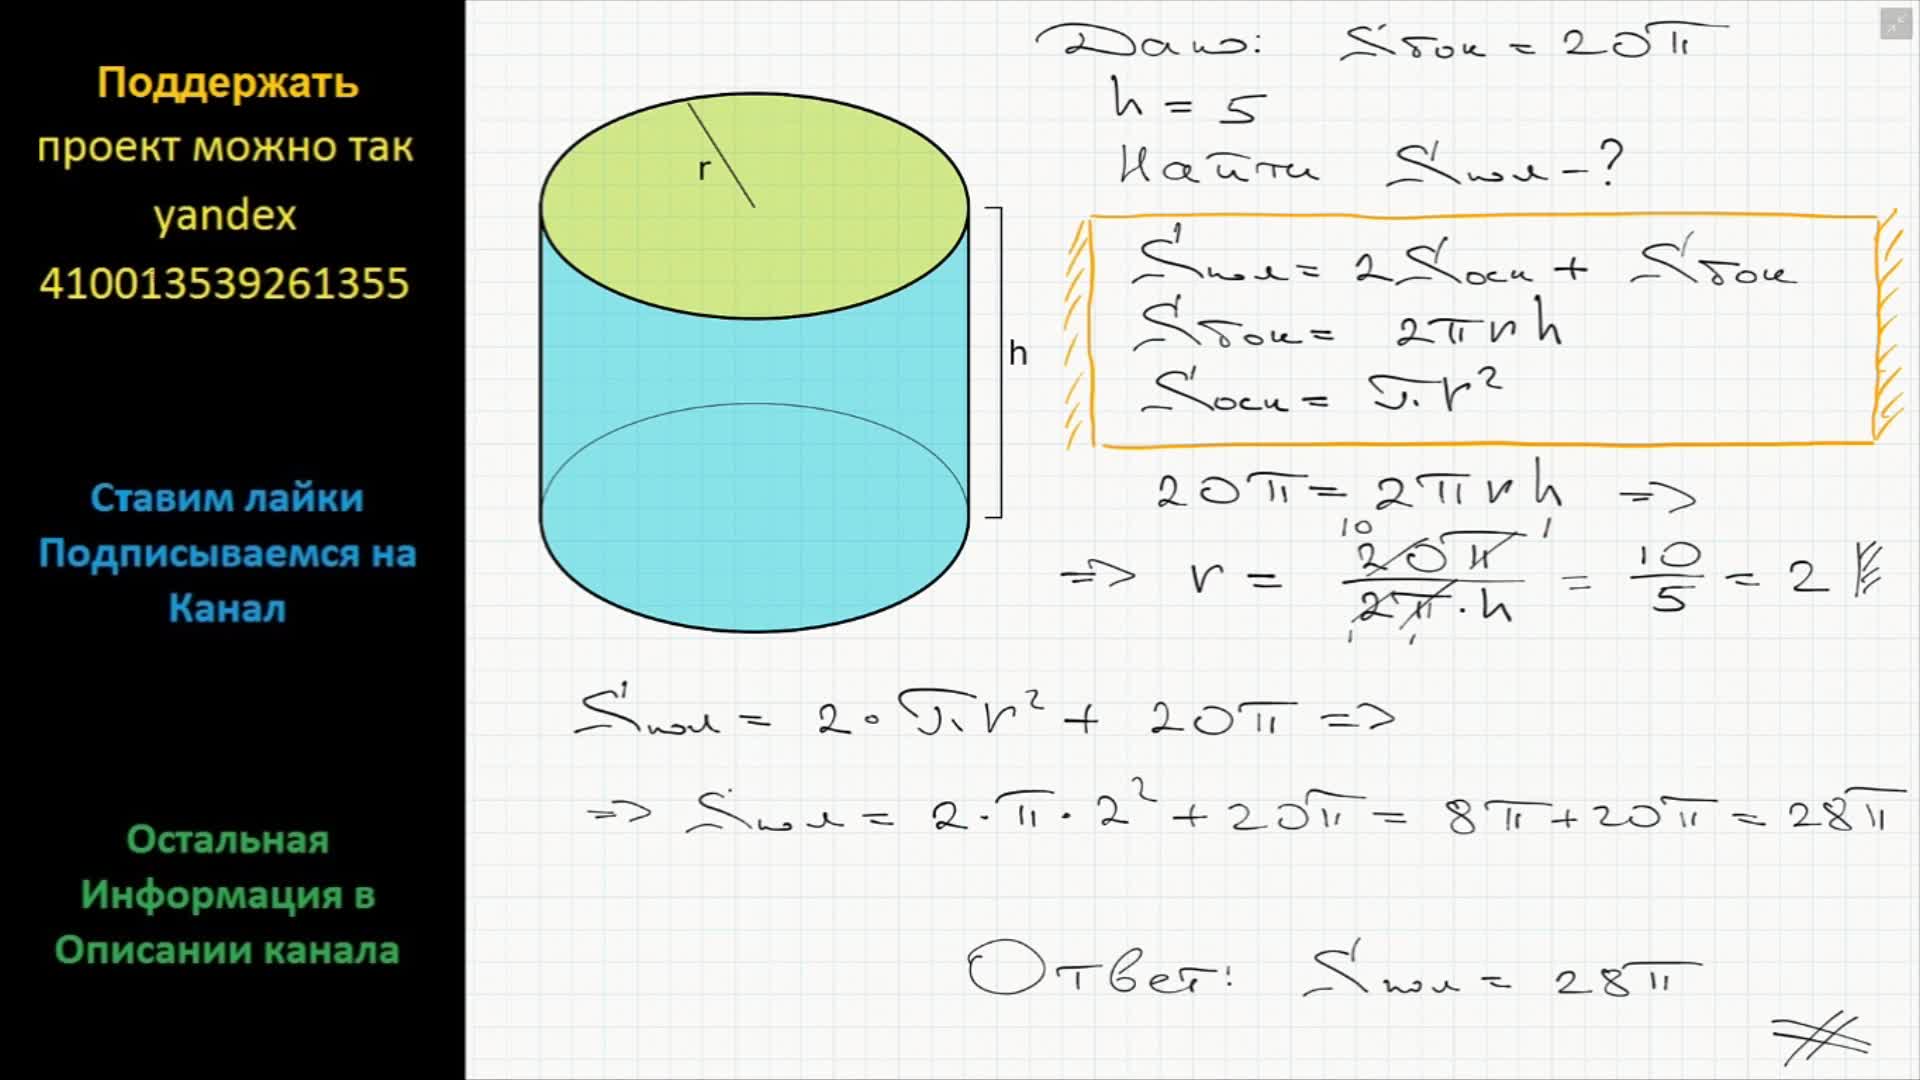 Поддержать
проект можно так
yandex
410013539261355
Ставим лайки
Подписываемся на
Канал
Остальная
Информация в
Описании канала
r
h
Дано: Sбок = 20π
h = 5
Найти Sпол - ?
Sпол = 2Sосн + Sбок
Sбок = 2πrh
Sосн = πr²
20π = 2πrh =>
10 1
=> r = 20π / 2π·h = 10 / 5 = 2
1 1
Sпол = 2·πr² + 20π =>
=> Sпол = 2·π·2² + 20π = 8π + 20π = 28π
Ответ: Sпол = 28π